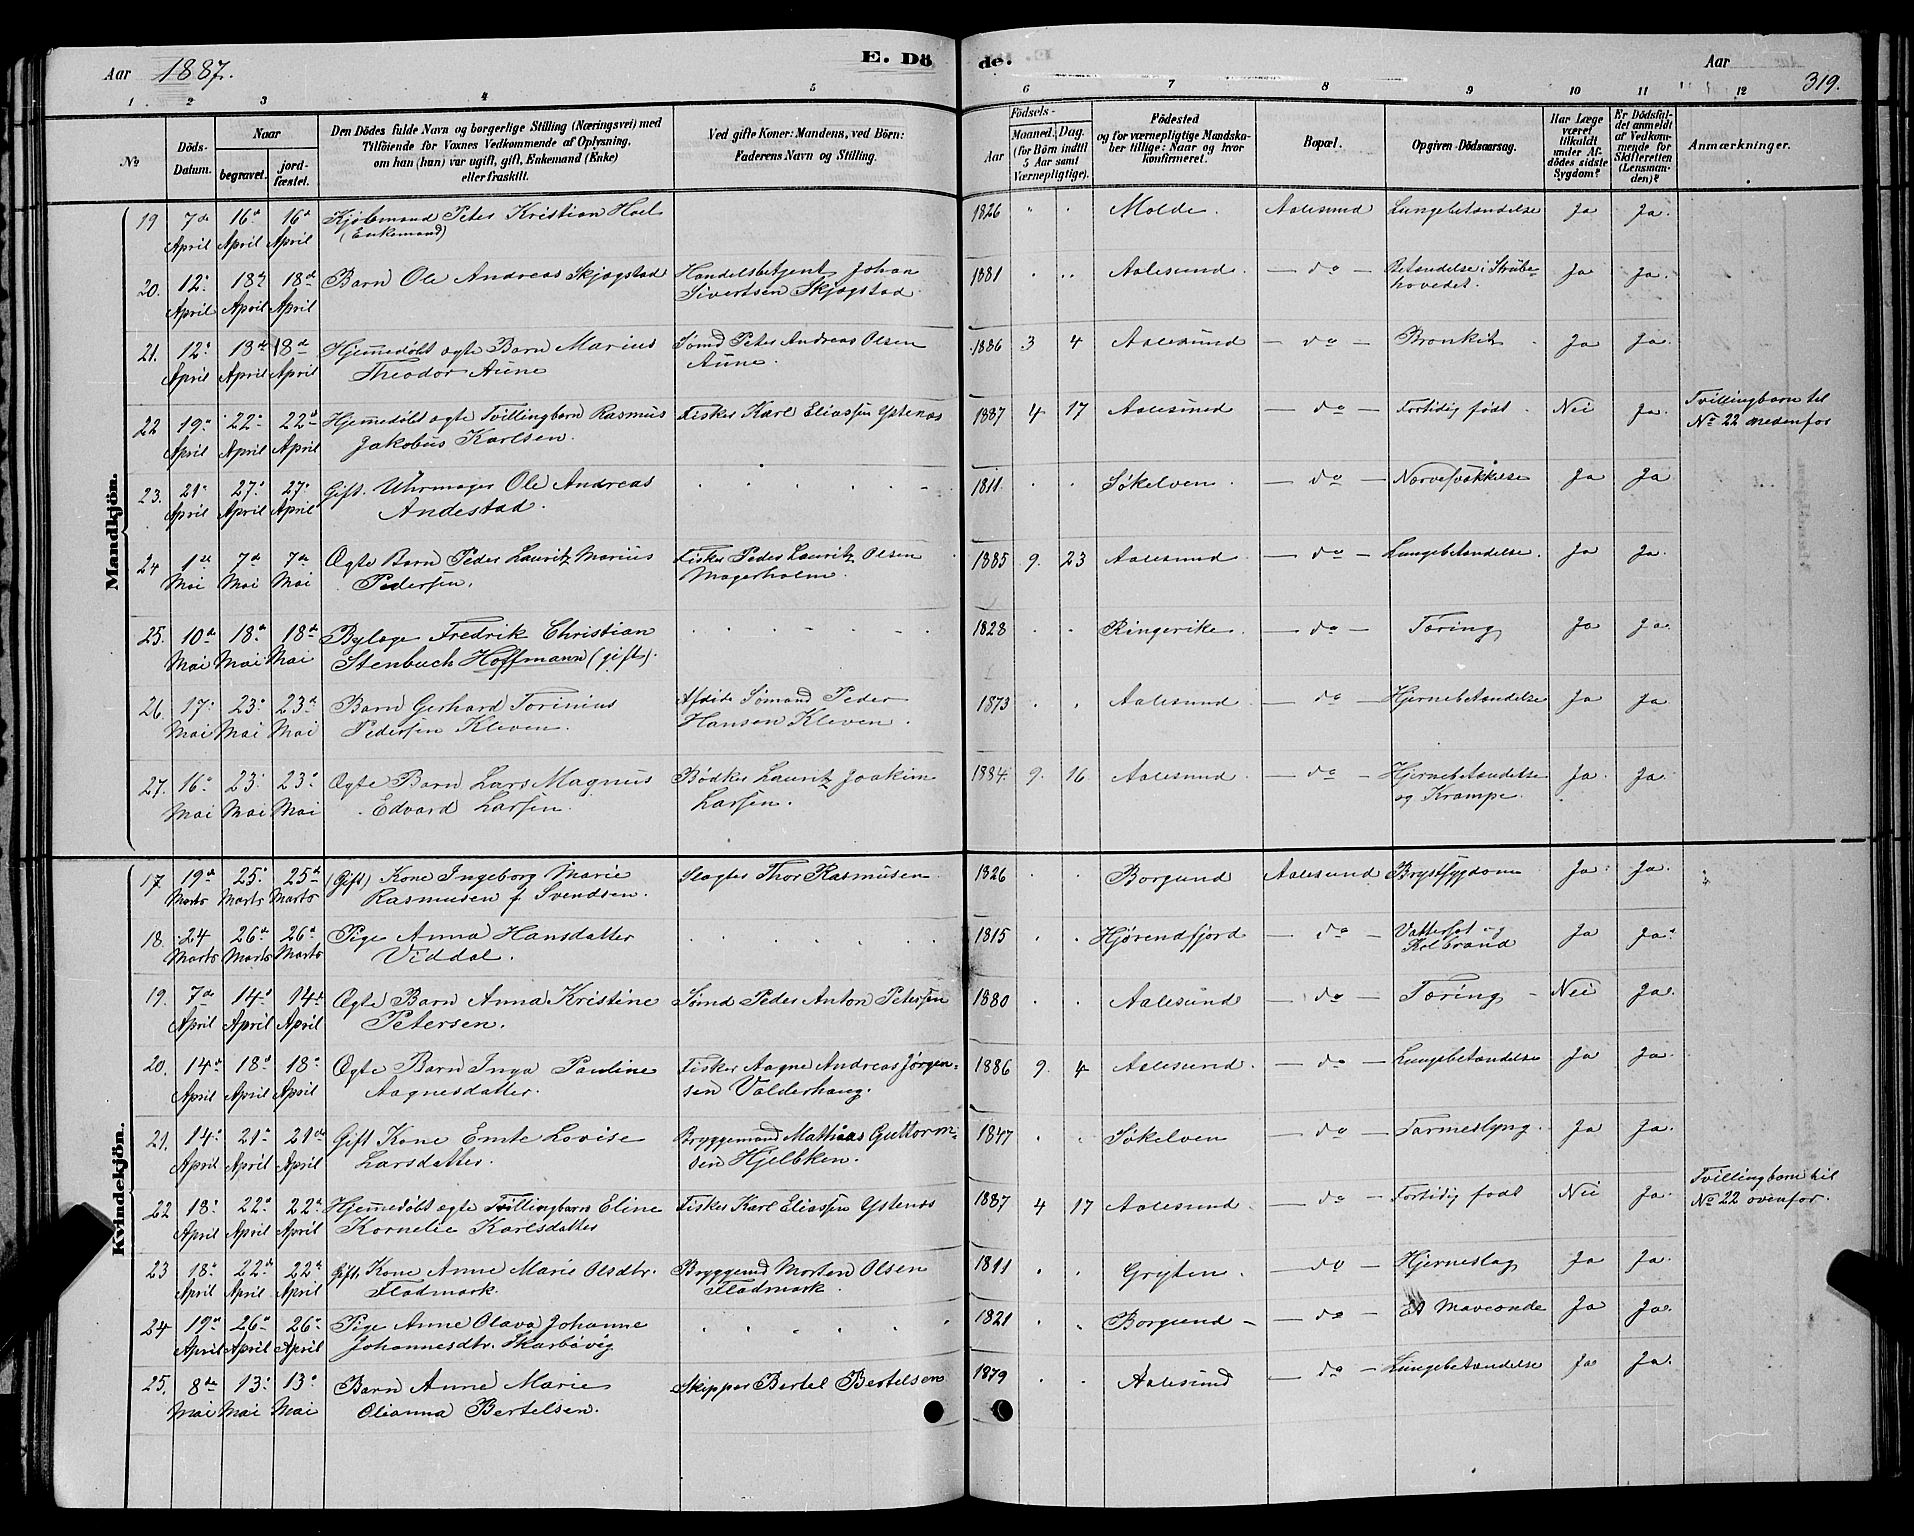 Aar 1887.
E. Dö
de.
Aar
319.
1 2 3 4 5 6 7 8 9 10 11 12
No
Döds-Datum.
Naar
begravet.
jord-fæstet.
Den Dödes fulde Navn og borgerlige Stilling (Næringsvei) med
Tilföiende for Voxnes Vedkommende af Oplysning,
om han (hun) var ugift, gift, Enkemand (Enke)
eller fraskilt.
Ved gifte Koner: Mandens, ved Börn:
Faderens Navn og Stilling.
Födsels-
Aar
Maaned. Dag.
(for Börn indtil
5 Aar samt
Værnepligtige).
Födested
og for værnepligtige Mandska-
ber tillige: Naar og hvor
konfirmeret.
Bopæl.
Opgiven Dödsaarsag.
Har Læge
været
tilkaldt
under Af-
dödes sidste
Sygdom?
Er Dödsfal-
det anmeldt
af Vedkom-
mende for
Skifteretten
(Lensman-
den)?
Anmærkninger.
Mandkjön.
19 7de April 16d April 16d April Kjøbmand Peter Kristian Hoel (Enkemand) 1826 Molde. Aalesund Lungebetændelse Ja Ja.
20. 12. April 18d April 18de April Barn Ole Andreas Skjøgstad Handelsbetjent Johan Sivertsen Skjøgstad 1881 Aalesund. do Betændelse i Strube-hovedet. Ja Ja.
21. 12. April 18de April 18de April Hjemmedøbt ægte Barn Marius Theodor Aune Sømd Peter Andreas Olsen Aune. 1886 3 4 Aalesund do Bronkit Ja Ja.
22 19. April 22. April 22d April Hjemmedøbt ægte Tvillingbarn Rasmus Jakobus Karlsen. Fisker Karl Eliassen Ystenæs 1887 4 17 Aalesund do Fortidig født. Nei Ja. Tvillingbarn til No 22 nedenfor
23. 21. April 27. April 27. April Gift. Uhrmager Ole Andreas Andestad. 1811 Søkelven. do Nervesvækkelse Ja Ja
24 1ste Mai 7de Mai 7de Mai Ægte Barn Peder Lauritz Marius Pedersen. Fisker Peder Lauritz Olsen Magerholm. 1885 9. 23 Aalesund do Lungebetændelse. Ja Ja.
25. 10de Mai 18. Mai 18de Mai Bylæge Fredrik Christian Stenbuch Hoffmann (gift). 1828 Ringerike. do Tæring Ja Ja.
26. 17. Mai 23. Mai 23d Mai Barn Gerhard Torinius Pedersen Kleven. Afdøde Sømand Peder Hansen Kleven. 1873 Aalesund. do Hjernebetændelse Ja Ja
27. 16. Mai 23. Mai 23. Mai Ægte Barn Lars Magnus Edvard Larsen. Bødker Lauritz Joakim Larsen. 1884. 9. 16 Aalesund. do Hjernebetændelse og Krampe. Ja. Ja.
Kvindekjön.
17. 19de Marts 25. Marts 25de Marts (Gift) Kone Ingeborg Marie Rasmusen f. Svendsen. Slagter Thor Rasmusen 1826 Borgund Aalesund Brystsygdom Ja Ja.
18. 24 Marts 26d Marts 26d Marts Pige Anna Hansdatter Viddal. 1815 Hjørendfjord do Vattersot og Kolbrand Ja Ja.
19. 7de April 14d April 14de April Ægte Barn Anna Kristine Petersen. Sømd Peder Anton Petersen 1880 Aalesund do Tæring Nei Ja.
20. 14d April 18d April 18. April Ægte Barn Inga Pauline Aagnesdatter. Fisker Aagne Andreas Jørgen-sen Valderhaug. 1886 9. 4 Aalesund. do Lungebetændelse Ja Ja.
21. 14. April 21. April 21de April Gift Kone Emte Lovise Larsdatter. Bryggemand Mathias Guttorm-sen Hjelbken. 1847 Søkelven do Tarmeslyng. Ja Ja.
22 18. April 22. April 22d April Hjemmedøbt ægte Tvillingbarn Eline Kornelie Karlsdatter Fisker Karl Eliassen Ystenæs 1887 4 17 Aalesund. do Fortidig født Nei Ja. Tvillingbarn til No 22 ovenfor.
23 18. April 22de April 22d April Gift Kone Anne Marie Olsdtr. Fladmark. Bryggemd Morten Olsen Fladmark. 1811 Gryten. do Hjerneslag Ja Ja.
24 19d April 26d April 26. April Pige Anne Olava Johanne Johannesdtr. Skarbøvig 1821 Borgund do Et Maveonde Ja Ja.
25. 8de Mai 13. Mai 13. Mai Barn Anne Marie Olianna Bertelsen. Skipper Bertel Bertelsen 1879 Aalesund do Lungebetændelse Ja Ja.